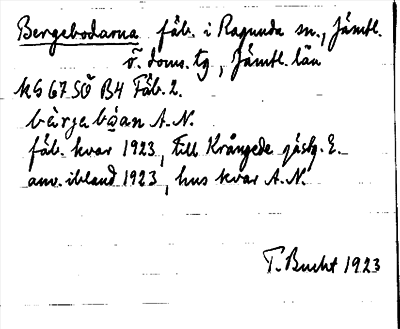 Bergebodarna fäb. i Ragunda sn., Jämtl.
ö. doms. tg, Jämtl. län
KS 67 SÖ B4 Fäb. 2.
bärjabo̤an A.N.
fäb. kvar 1923, till Krångede gästg. E.
anv. ibland 1923, hus kvar A.N.
T. Bucht 1923